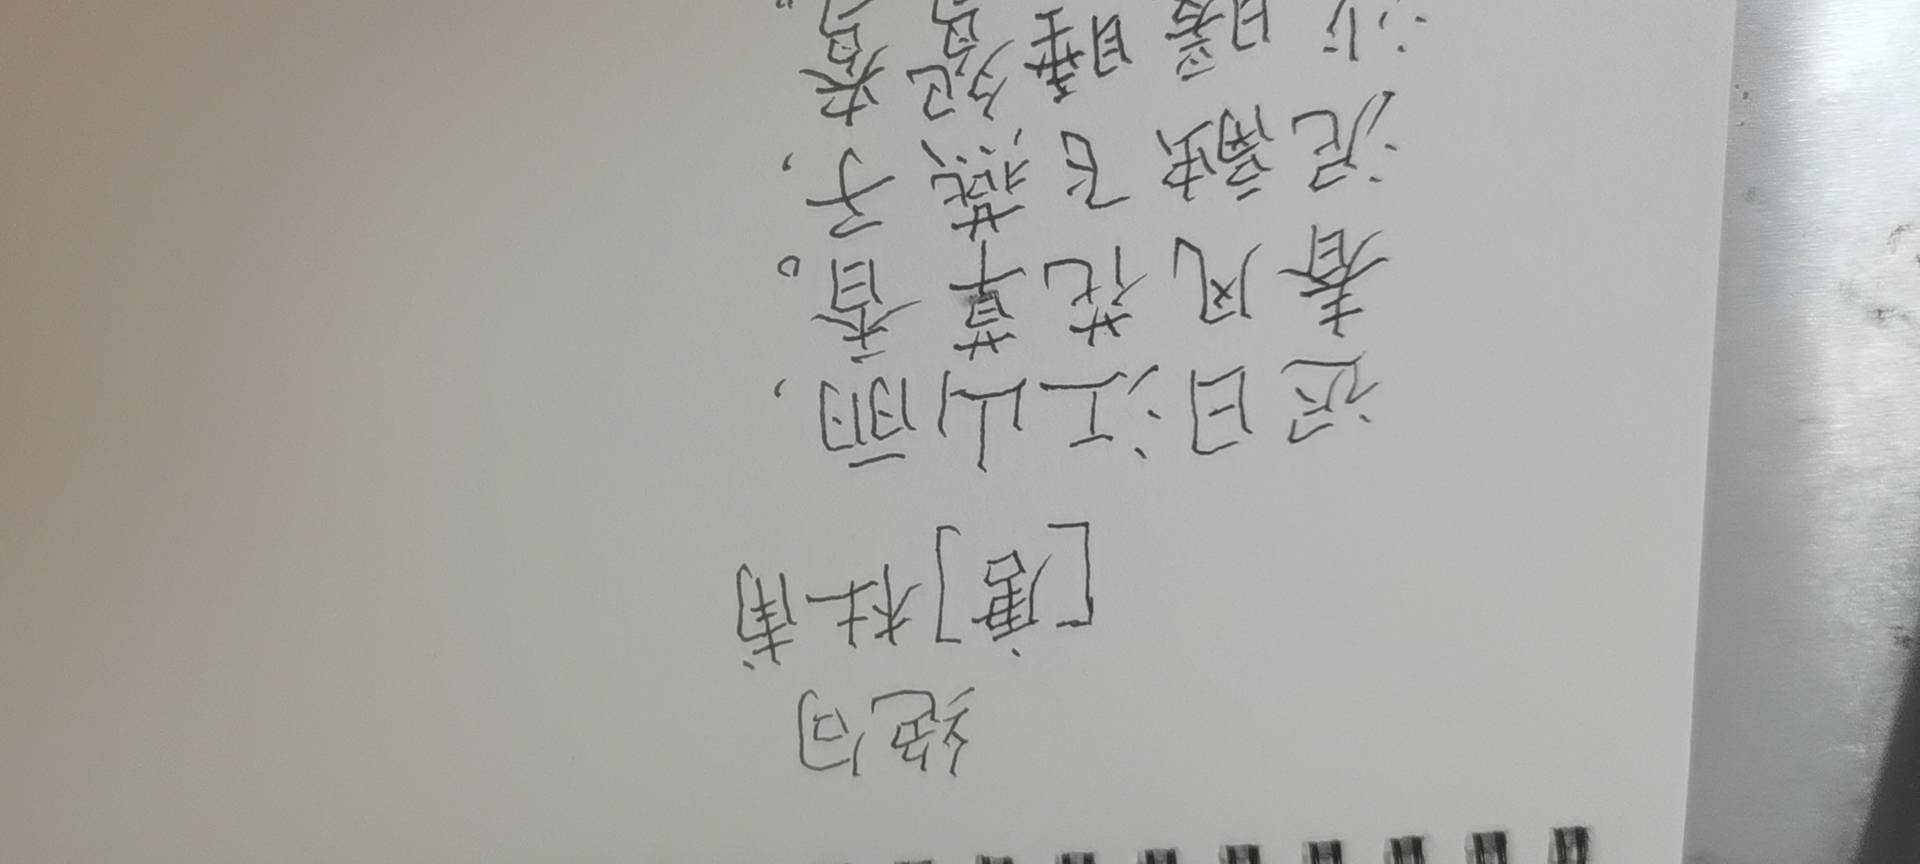 绝句
[唐]杜甫
迟日江山丽,
春风花草香。
泥融飞燕子,
沙暖睡鸳鸯。